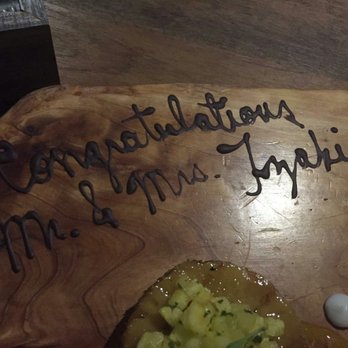 Congratulations
Mr. & Mrs. Iyaki